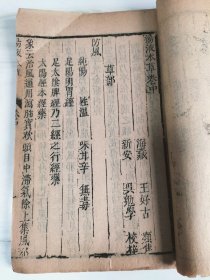 湯液本草卷中
海藏 王好古 類集
新安 吳勉學 校
草部
防風
純陽 性溫 味甘辛 無毒
足陽明胃經
足太陰脾經乃二經之行經藥
太陽經本經藥
象云治風通用瀉肺實散頭目中滯氣除上焦風邪
湯液本草